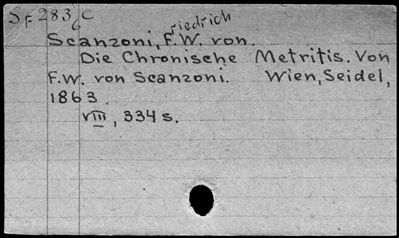 SF 283 C
6
riedrich
Scanzoni, F.W. von.
Die Chronische Metritis. Von
F.W. von Scanzoni. Wien, Seidel,
1863.
VIII, 334 s.